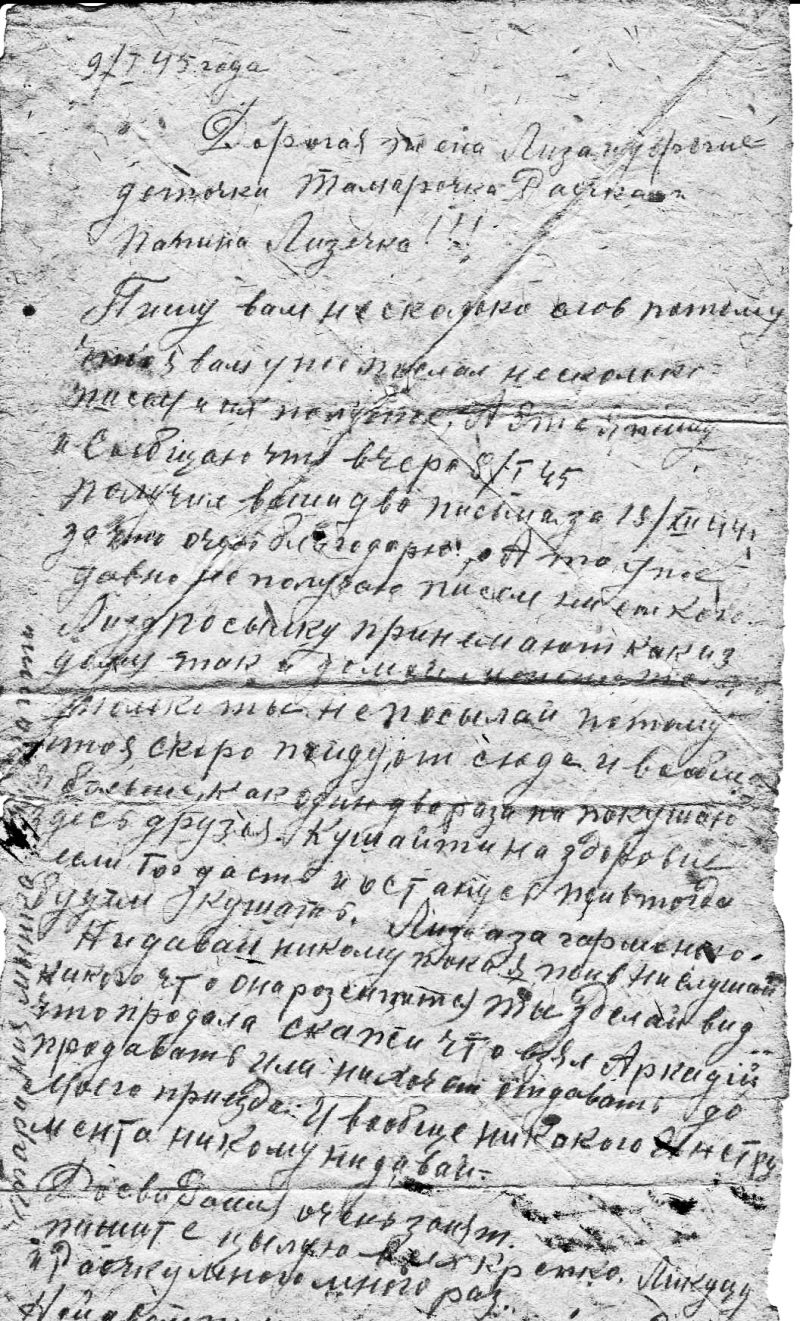 9/I 45 года
Дорогая жена Лиза и дорогие
деточки Тамарочка Раичка и
папина Лизечка!!!
Пишу вам несколько слов потому
что я вам уже послал несколько
писем и их получите. А этем пишу
и Сообщаю что вчера 8/I 45
получил ваши два письма за 19/XII 44
за что очень благодарю. А то уже
давно не получаю писем ни от кого.
Лиза посылку принемают как из
дому так и домой
только ты не посылай потому
что я скоро пойду от сюда и вообще
я больше, как один два раза ни покушаю
здесь друзья. Кушайти на здоровие
если Бог даст и останусь жив тогда
будим кушать. Лиза а за гармонью.
Нидавай никому пока я жив нислушай
никого что она розсипится ты зделай вид
что продала скажи что взял Аркадий
продавать или нихочет отдавать до
моего приезда. И вообще никакого Инстру
мента никому нидавай.
Досвидания очень занят.
пишите цылую вых крепко. Ликуцу
и Раичку много много раз.